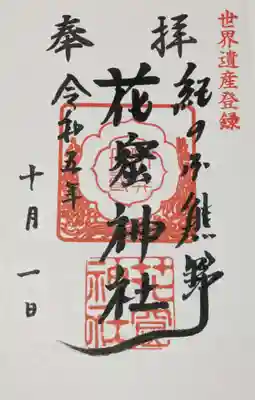 世界遺産登録
奉拝
紀の国熊野
花窟神社
令和五年
十月一日
花窟神社